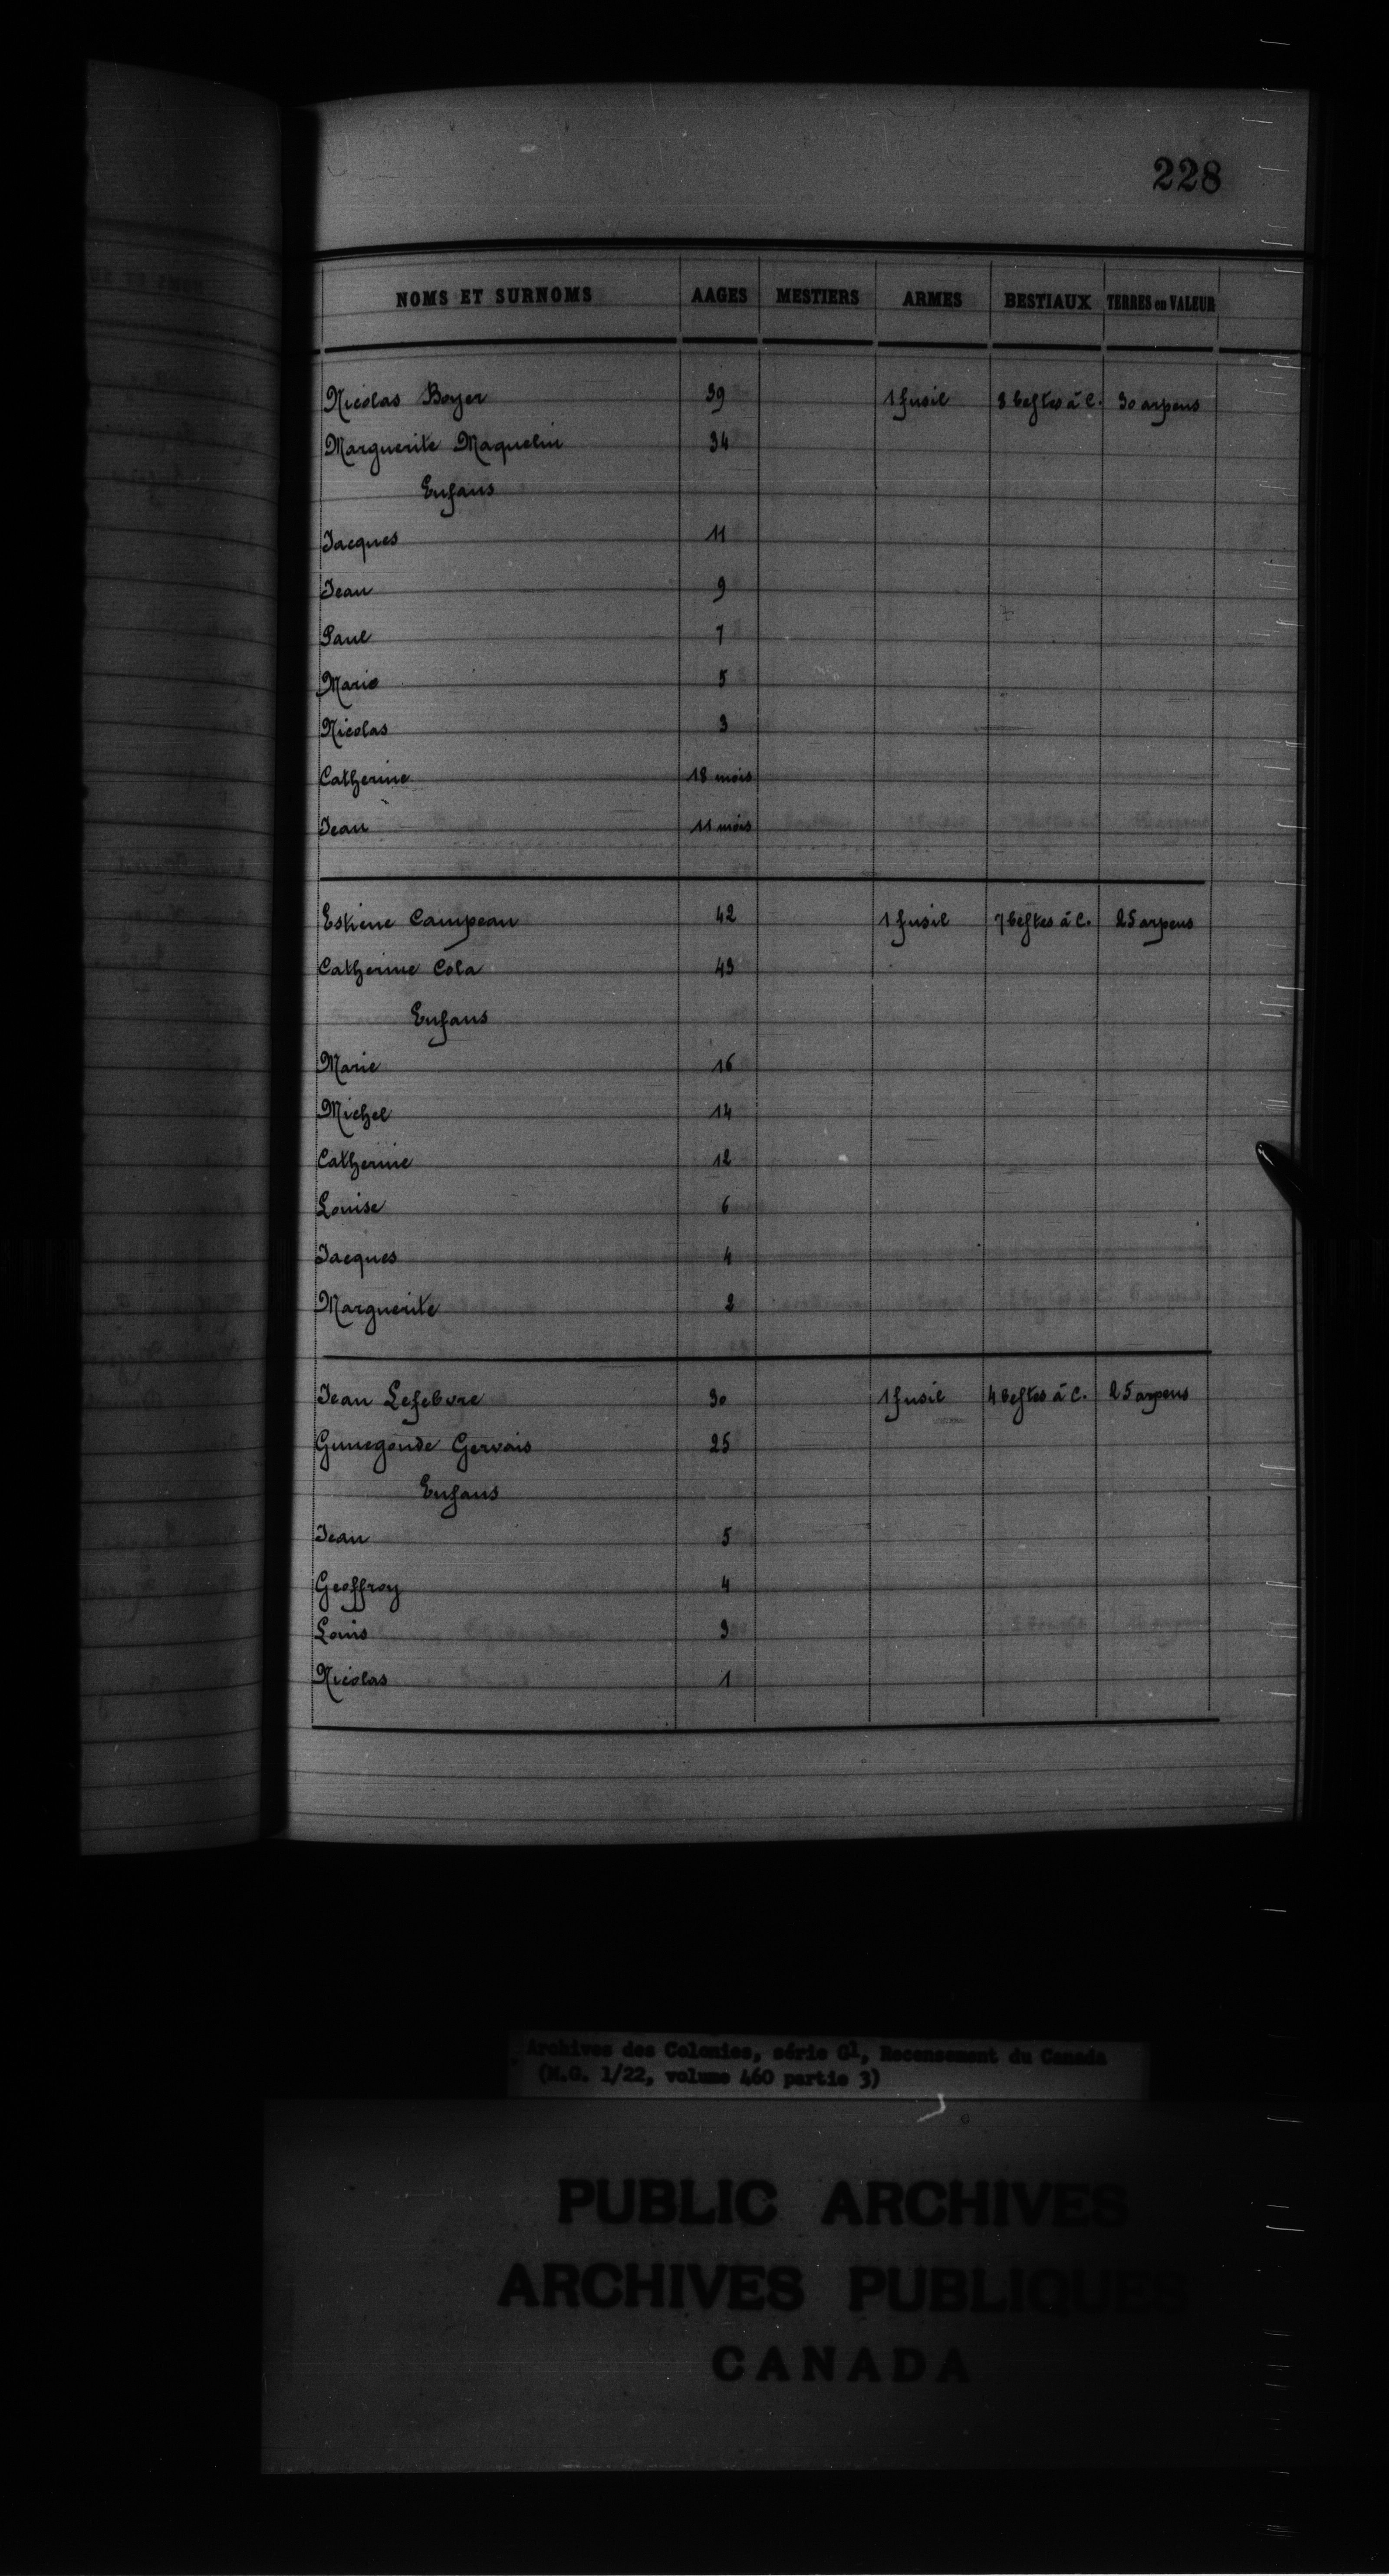 228
NOMS ET SURNOMS AAGES MESTIERS ARMES BESTIAUX TERRES en VALEUR
Nicolas Boyer 39 1 fusil 8 bestes à C. 30 arpens
Marguerite Maquelin 34
Enfans
Jacques 11
Jean 9
Paul 7
Marie 5
Nicolas 3
Catherine 18 mois
Jean 11 mois
Estiene Campeau 42 1 fusil 7 bestes à C. 25 arpens
Catherine Cola 43
Enfans
Marie 16
Michel 14
Catherine 12
Louise 6
Jacques 4
Marguerite 2
Jean Lefebvre 30 1 fusil 4 bestes à C. 25 arpens
Gunegonde Gervais 25
Enfans
Jean 5
Geoffroy 4
Louis 3
Nicolas 1
Archives des Colonies, série G1, Recensement du Canada
(M.G. 1/22, volume 460 partie 3)
PUBLIC ARCHIVES
ARCHIVES PUBLIQUES
CANADA